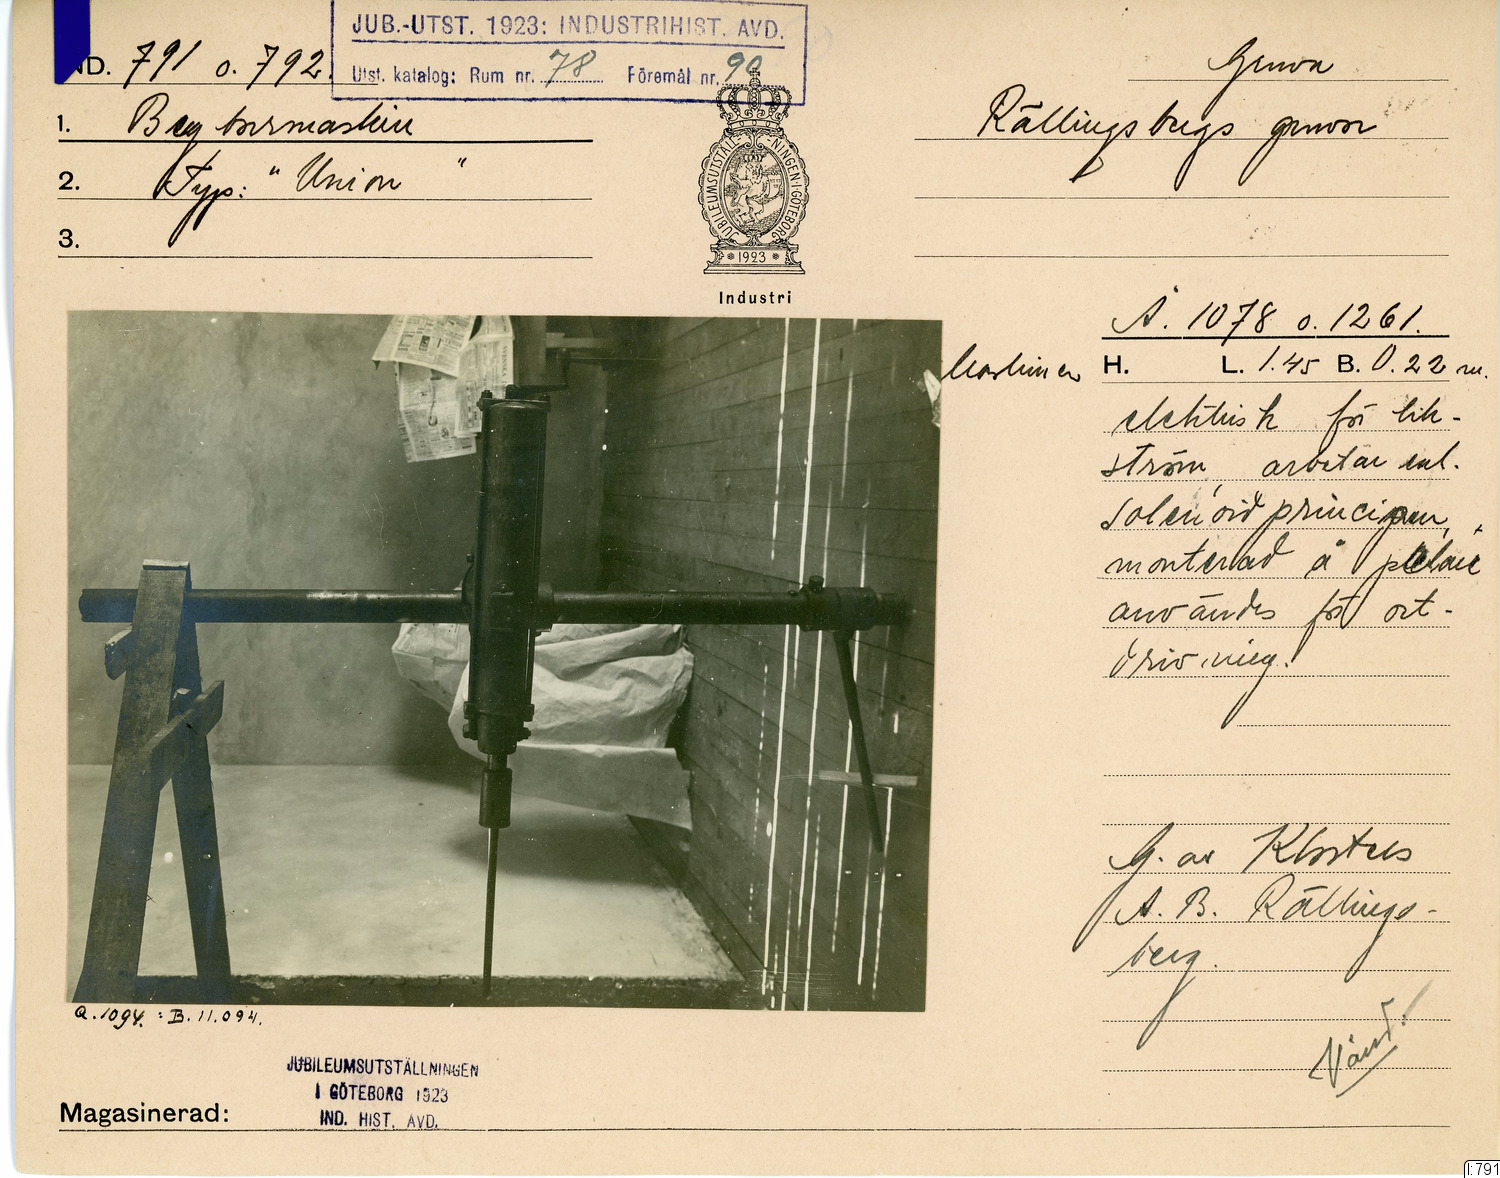 JUB.-UTST. 1923: INDUSTRIHIST. AVD.
Utst. katalog: Rum nr. 78 Föremål nr. 90
IND. 791 o. 792.
1. Bergborrmaskin
2. Typ: "Union"
3.
JUBILEUMSUTSTÄLLNINGEN·I·GÖTEBORG
* 1923 *
Industri
Gruvor
Rällingsbergs gruvor
A. 1078 o. 1261.
Maskinen H. L. 1.45 B. 0.22 m.
elektrisk för lik-
ström, arbetar enl.
solenoidprincipen,
monterad å pelare
användes för ort-
drivning.
G. av Klosters
A. B. Rällings-
berg.
Vänd!
Q.1094. : B.11.094.
JUBILEUMSUTSTÄLLNINGEN
I GÖTEBORG 1923
IND. HIST. AVD.
Magasinerad:
I:791